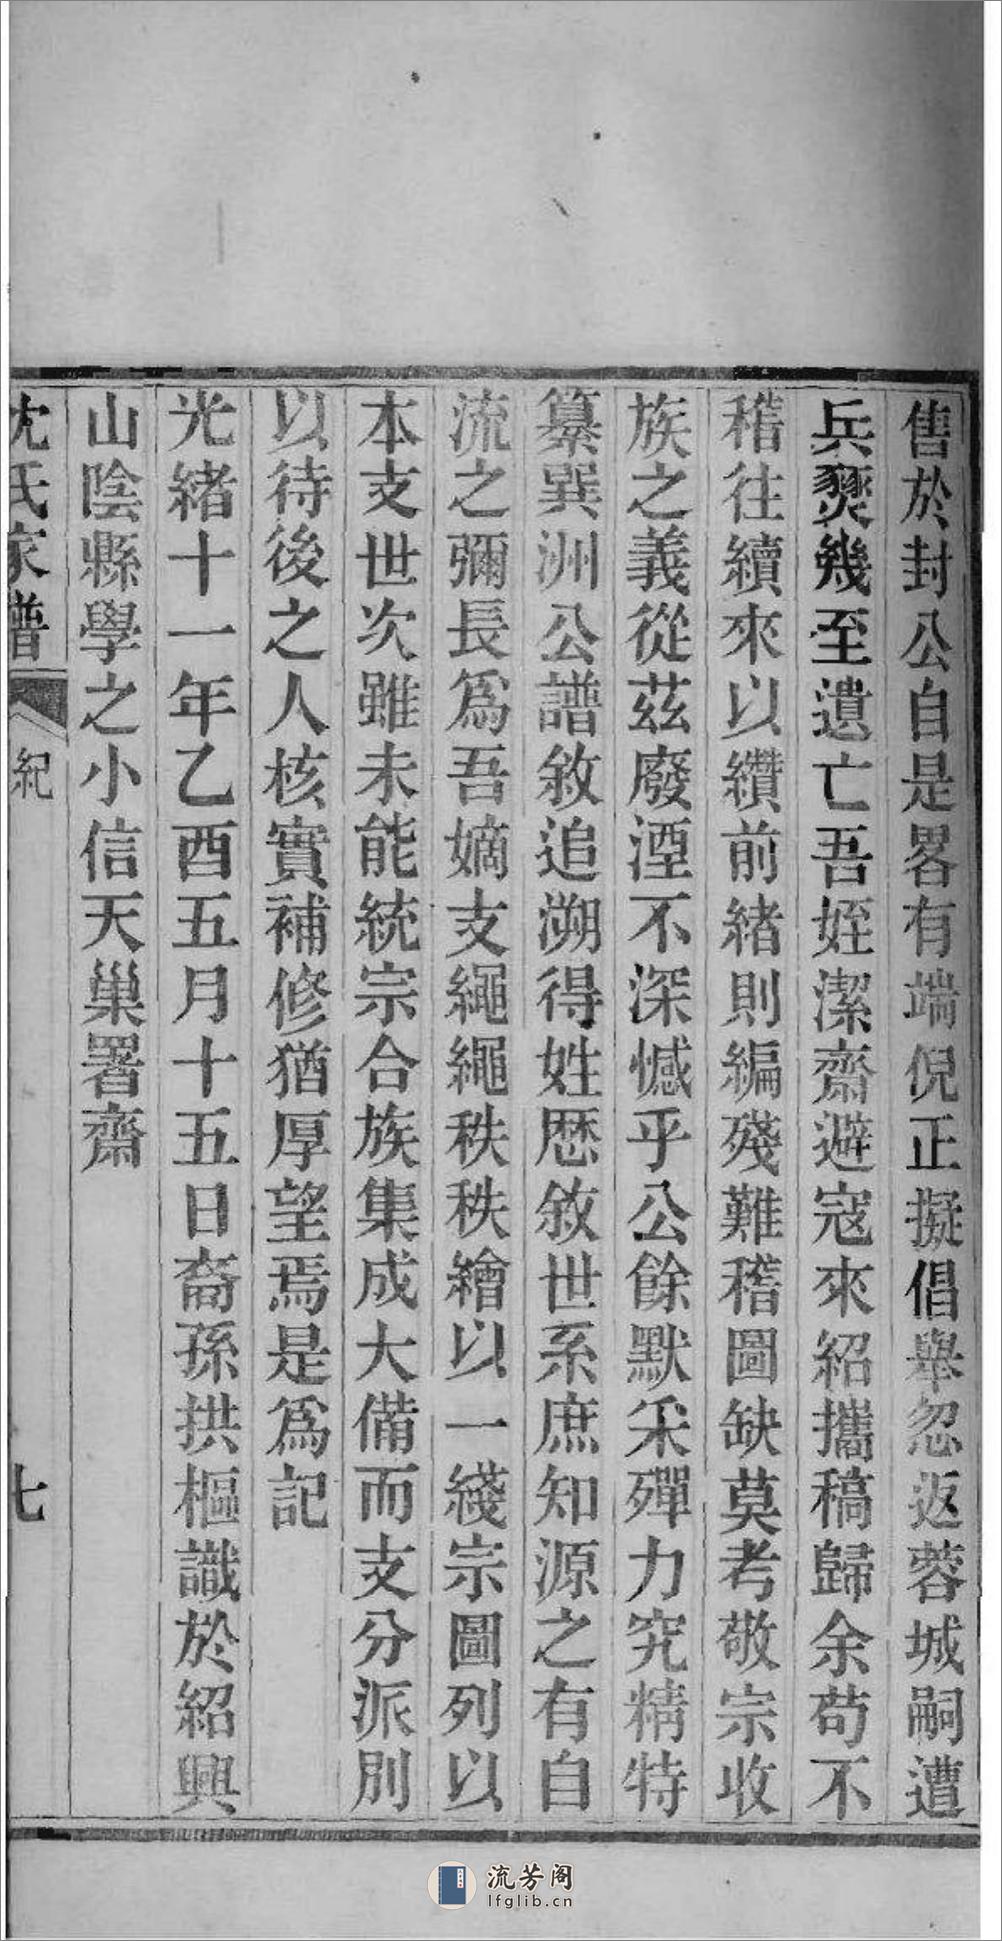 售於封公自是畧有端倪正擬倡舉忽返蓉城嗣遭
兵燹幾至遺亡吾姪潔齋避寇來紹攜稿歸余苟不
稽往續來以纘前緒則編殘難稽圖缺莫考敬宗收
族之義從茲廢湮不深憾乎公餘默采殫力究精特
纂巽洲公譜敘追溯得姓歷敘世系庶知源之有自
流之彌長爲吾嫡支繩繩秩秩繪以一綫宗圖列以
本支世次雖未能統宗合族集成大備而支分派別
以待後之人核實補修猶厚望焉是爲記
光緒十一年乙酉五月十五日裔孫拱樞識於紹興
山陰縣學之小信天巢署齋
沈氏家譜 紀 七
流芳阁
lfglib.cn